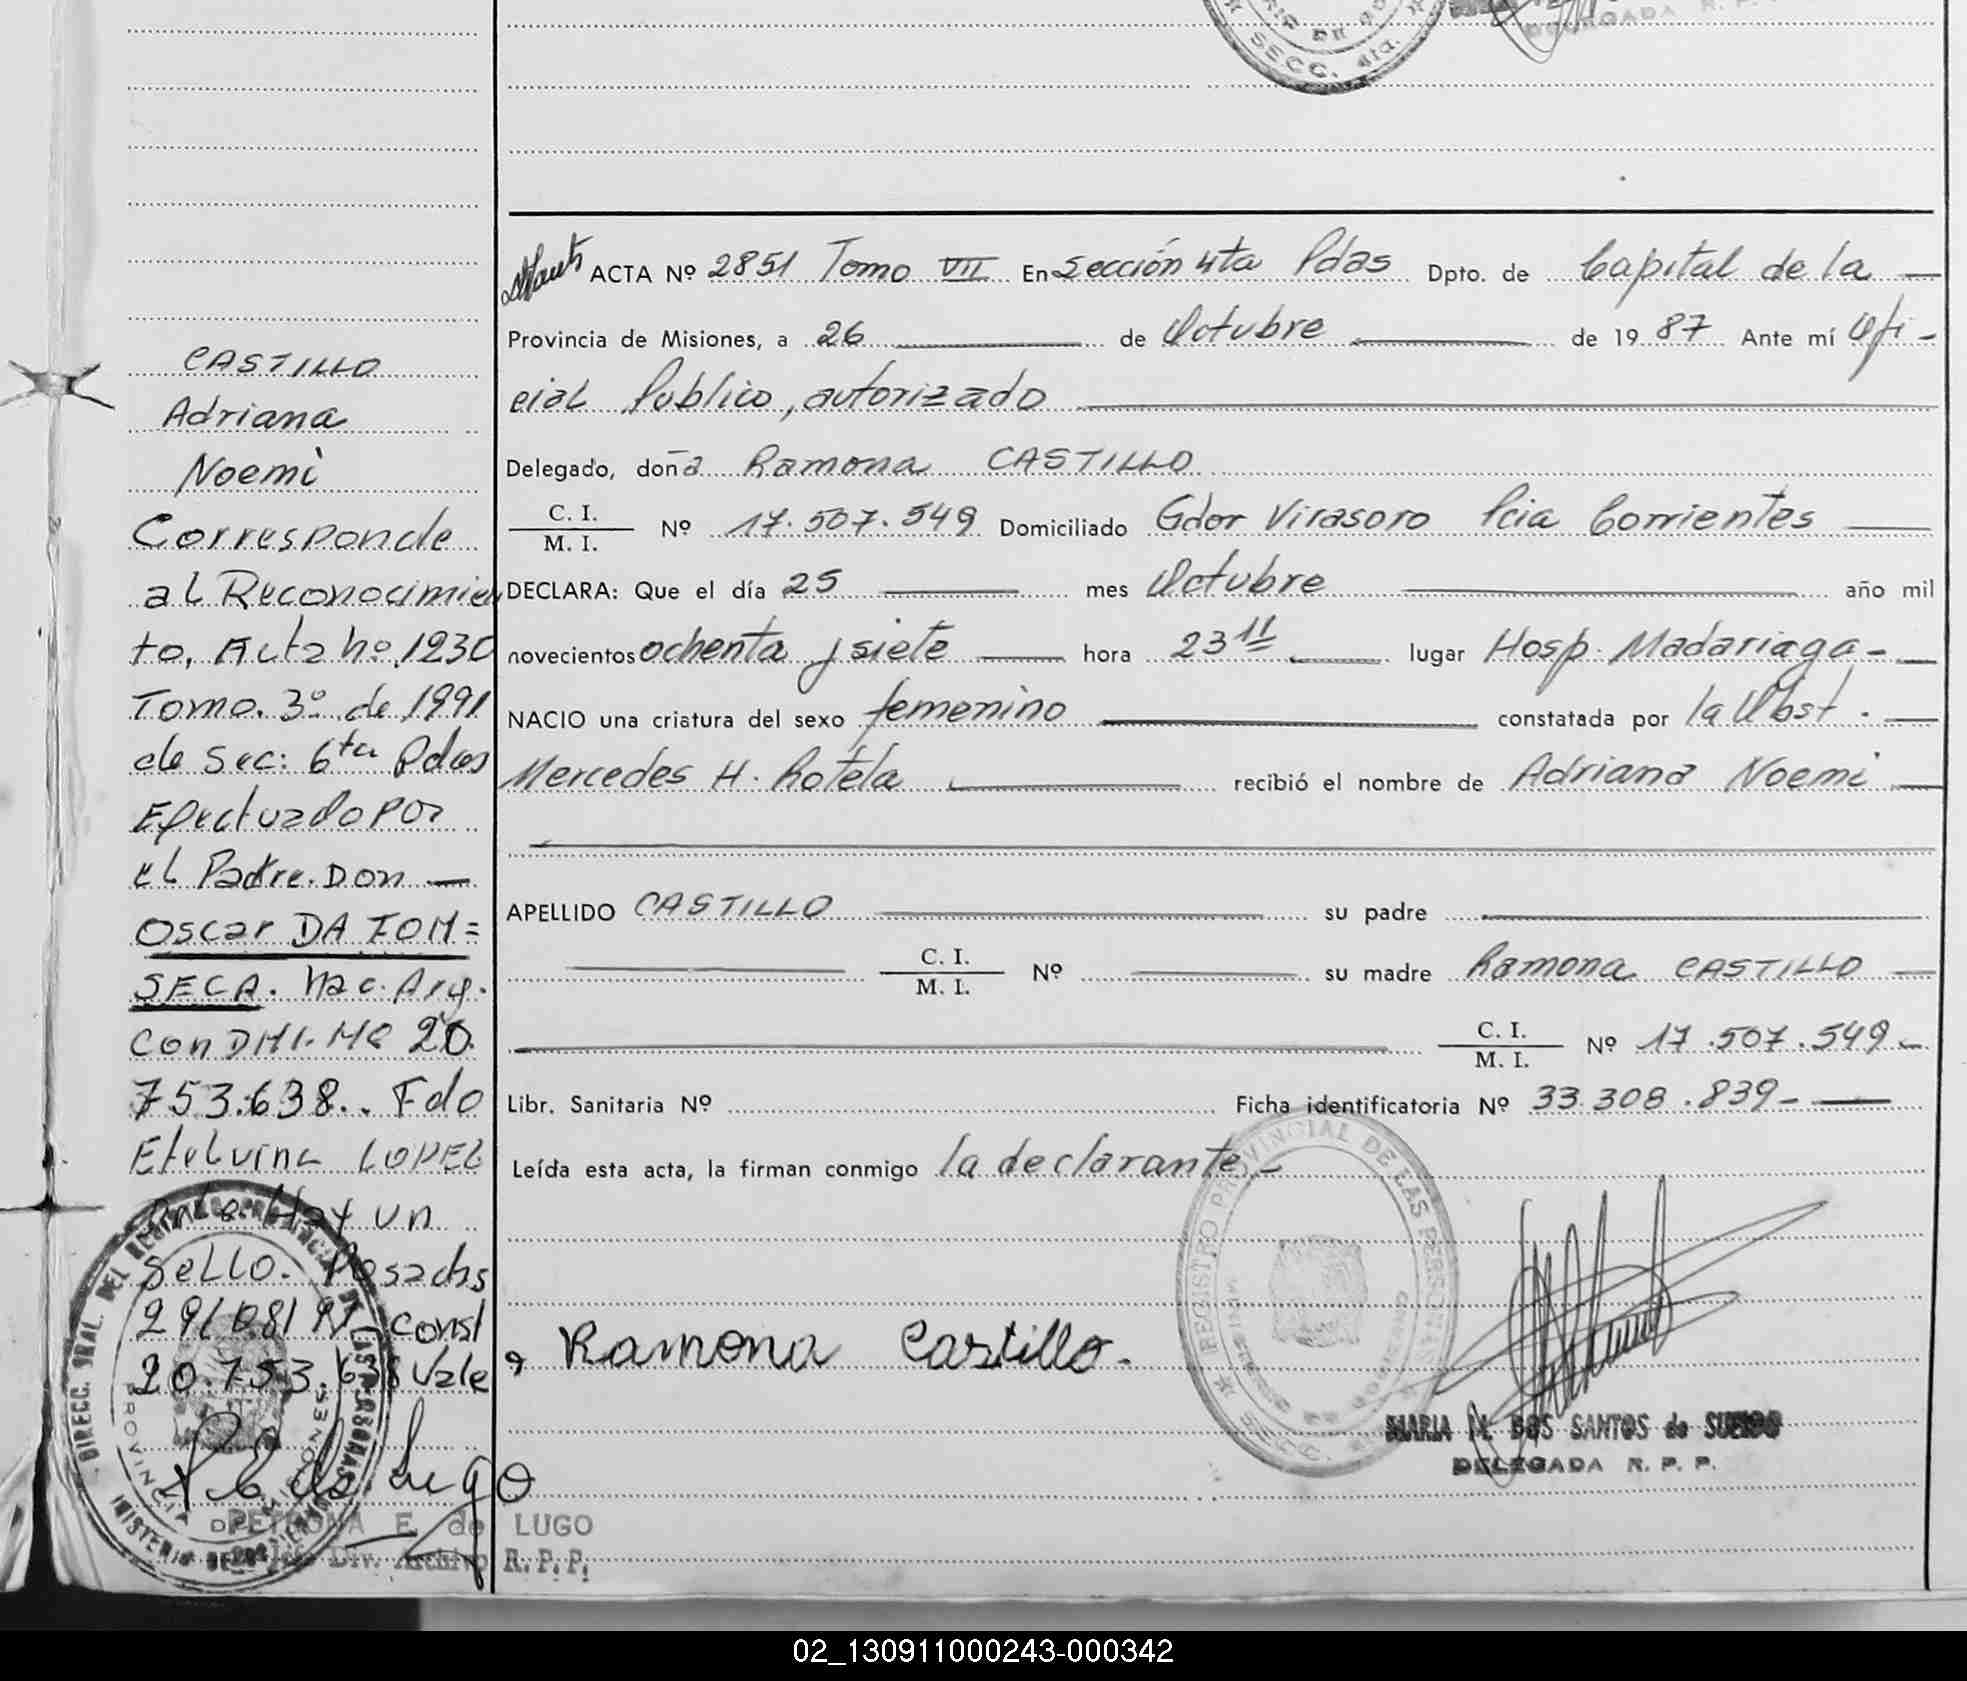 SECC. 4ta.
DELEGADA R. P. P.
CASTILLO
Adriana
Noemi
Corresponde
al Reconocimien
to, Acta nº 1230
Tomo. 3º de 1991
de Sec: 6ta Pdas
Efectuado por
el Padre. Don —
Oscar DA FON=
SECA. Nac. Arg.
con DNI. Nº 20.
753.638.. Fdo
Etelvina LOPEZ
Hay un
Sello. Posadas
29/08/91 - const
20.753.638 Vale
P. E. de Lugo
PETRONA E. de LUGO
Div. Archivo R. P. P.
DIRECC. GRAL. DEL REGISTRO PROVINCIAL DE LAS PERSONAS
PROVINCIA DE MISIONES
MINISTERIO DE GOBIERNO
ACTA Nº 2851 Tomo VII En Sección 4ta Pdas Dpto. de Capital de la —
Provincia de Misiones, a 26 — de Octubre — de 19 87 Ante mí Ofi-
cial Publico, autorizado —
Delegado, doña Ramona CASTILLO
C. I. / M. I. Nº 17.507.549 Domiciliado Gdor Virasoro Pcia Corrientes —
DECLARA: Que el día 25 — mes Octubre — año mil
novecientos ochenta y siete — hora 23 11 — lugar Hosp. Madariaga - —
NACIO una criatura del sexo femenino — constatada por la Obst. —
Mercedes H. Rotela — recibió el nombre de Adriana Noemi —
APELLIDO CASTILLO — su padre —
— C. I. / M. I. Nº — su madre Ramona CASTILLO —
— C. I. / M. I. Nº 17.507.549. -
Libr. Sanitaria Nº Ficha identificatoria Nº 33.308.839 - —
Leída esta acta, la firman conmigo la declarante -
REGISTRO PROVINCIAL DE LAS PERSONAS
SECC.
Ramona Castillo.
MARIA M. DOS SANTOS de
DELEGADA R. P. P.
02_130911000243-000342